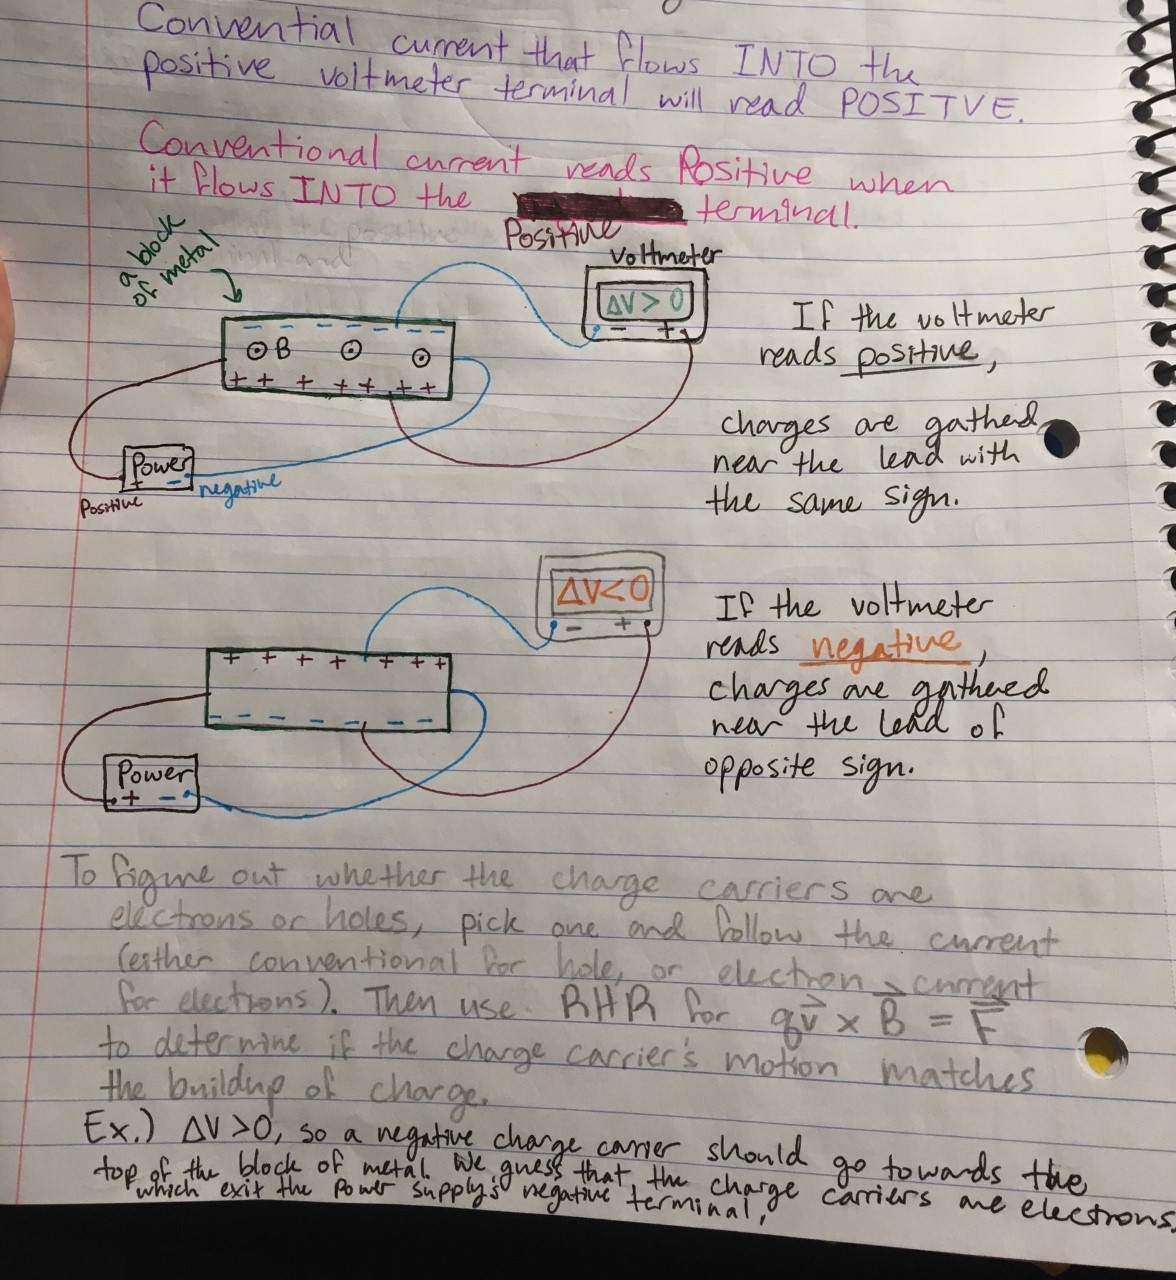 Convential current that flows INTO the
positive voltmeter terminal will read POSITVE.
Conventional current reads Positive when
it flows INTO the terminal.
Positive
a block
of metal
voltmeter
ΔV > 0
- +
- - - - - - - -
⊙ B ⊙ ⊙
+ + + + + + +
Power
+ -
Positive
negative
If the voltmeter
reads positive,
charges are gatherd
near the lead with
the same sign.
ΔV<0
- +
+ + + + + + +
- - - - - - -
Power
+ -
If the voltmeter
reads negative,
charges are gathered
near the lead of
opposite sign.
To figure out whether the charge carriers are
electrons or holes, pick one and follow the current
(either conventional for hole, or electron current
for electrons). Then use RHR for qv⃗ × B⃗ = F⃗
to determine if the charge carrier's motion matches
the buildup of charge.
Ex.) ΔV >0, so a negative charge carrier should go towards the
top of the block of metal. We guess that the charge carriers are electrons,
which exit the power supply's negative terminal,